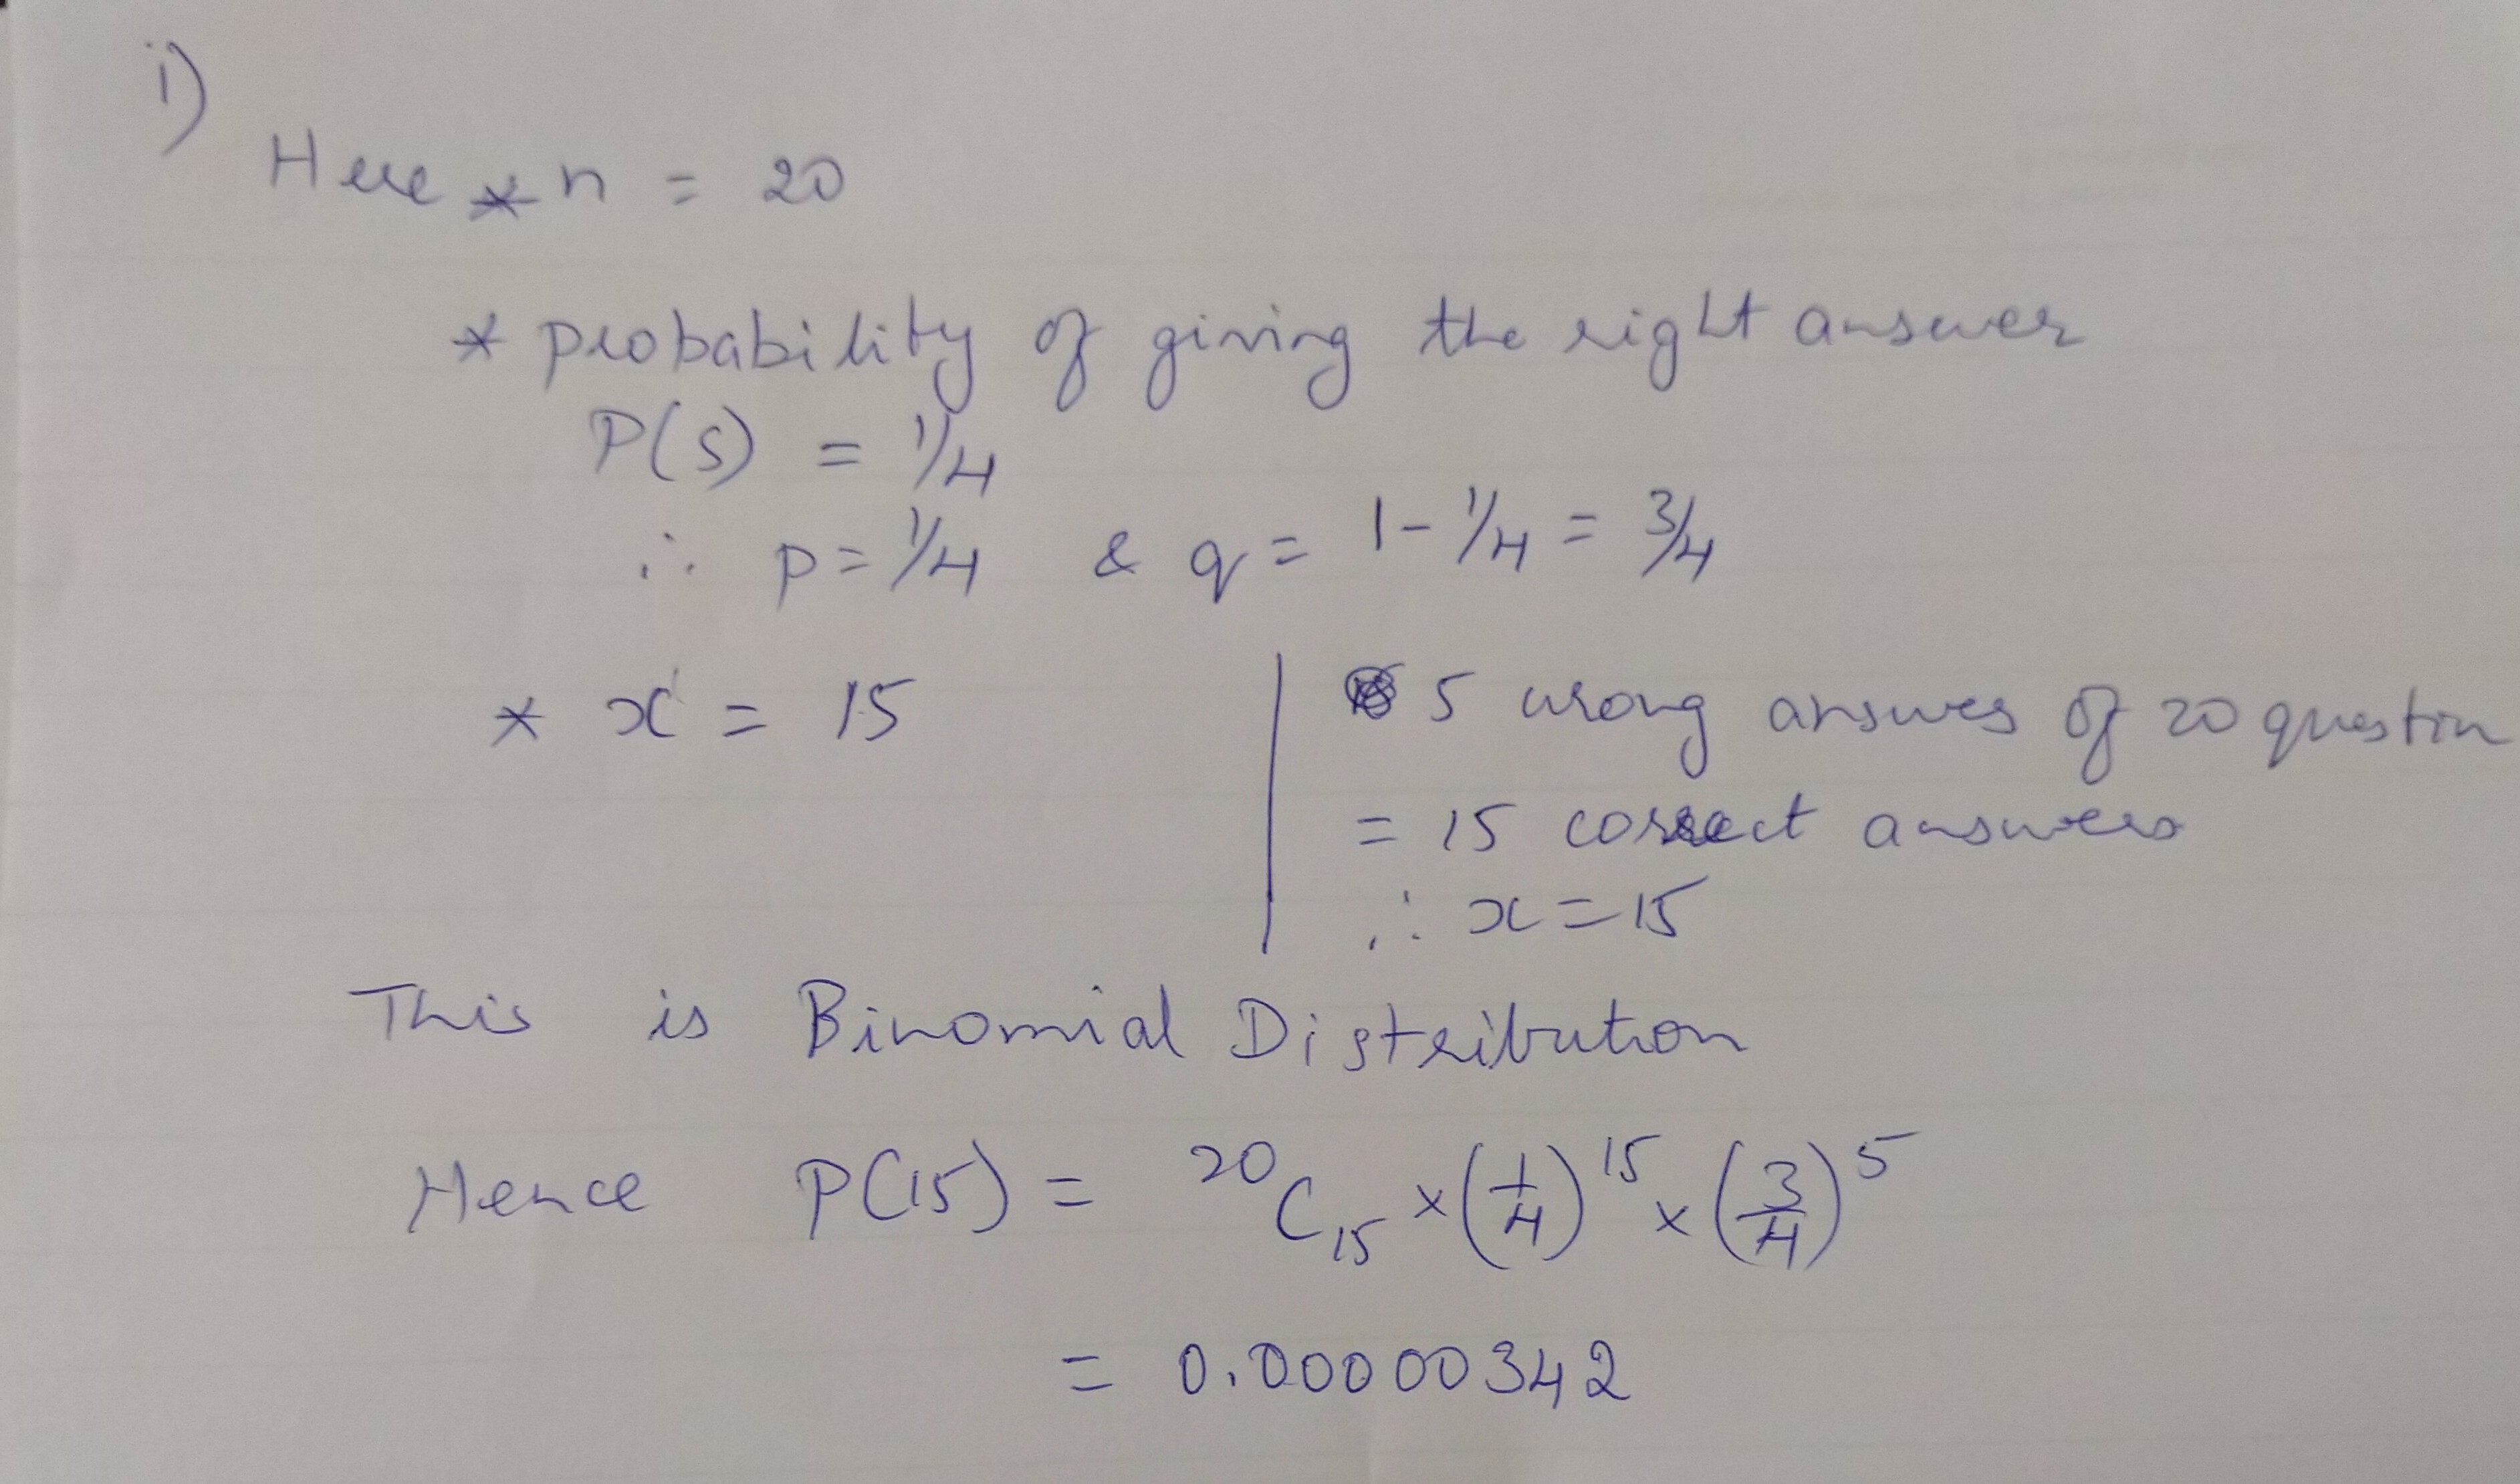 i)
Here * n = 20
* probability of giving the right answer
P(S) = 1/4
∴ p = 1/4 & q = 1 - 1/4 = 3/4
* x = 15
5 wrong answes of 20 question
= 15 correct answers
∴ x = 15
This is Binomial Distribution
Hence P(15) = ²⁰C₁₅ × (1/4)¹⁵ × (3/4)⁵
= 0.00000342